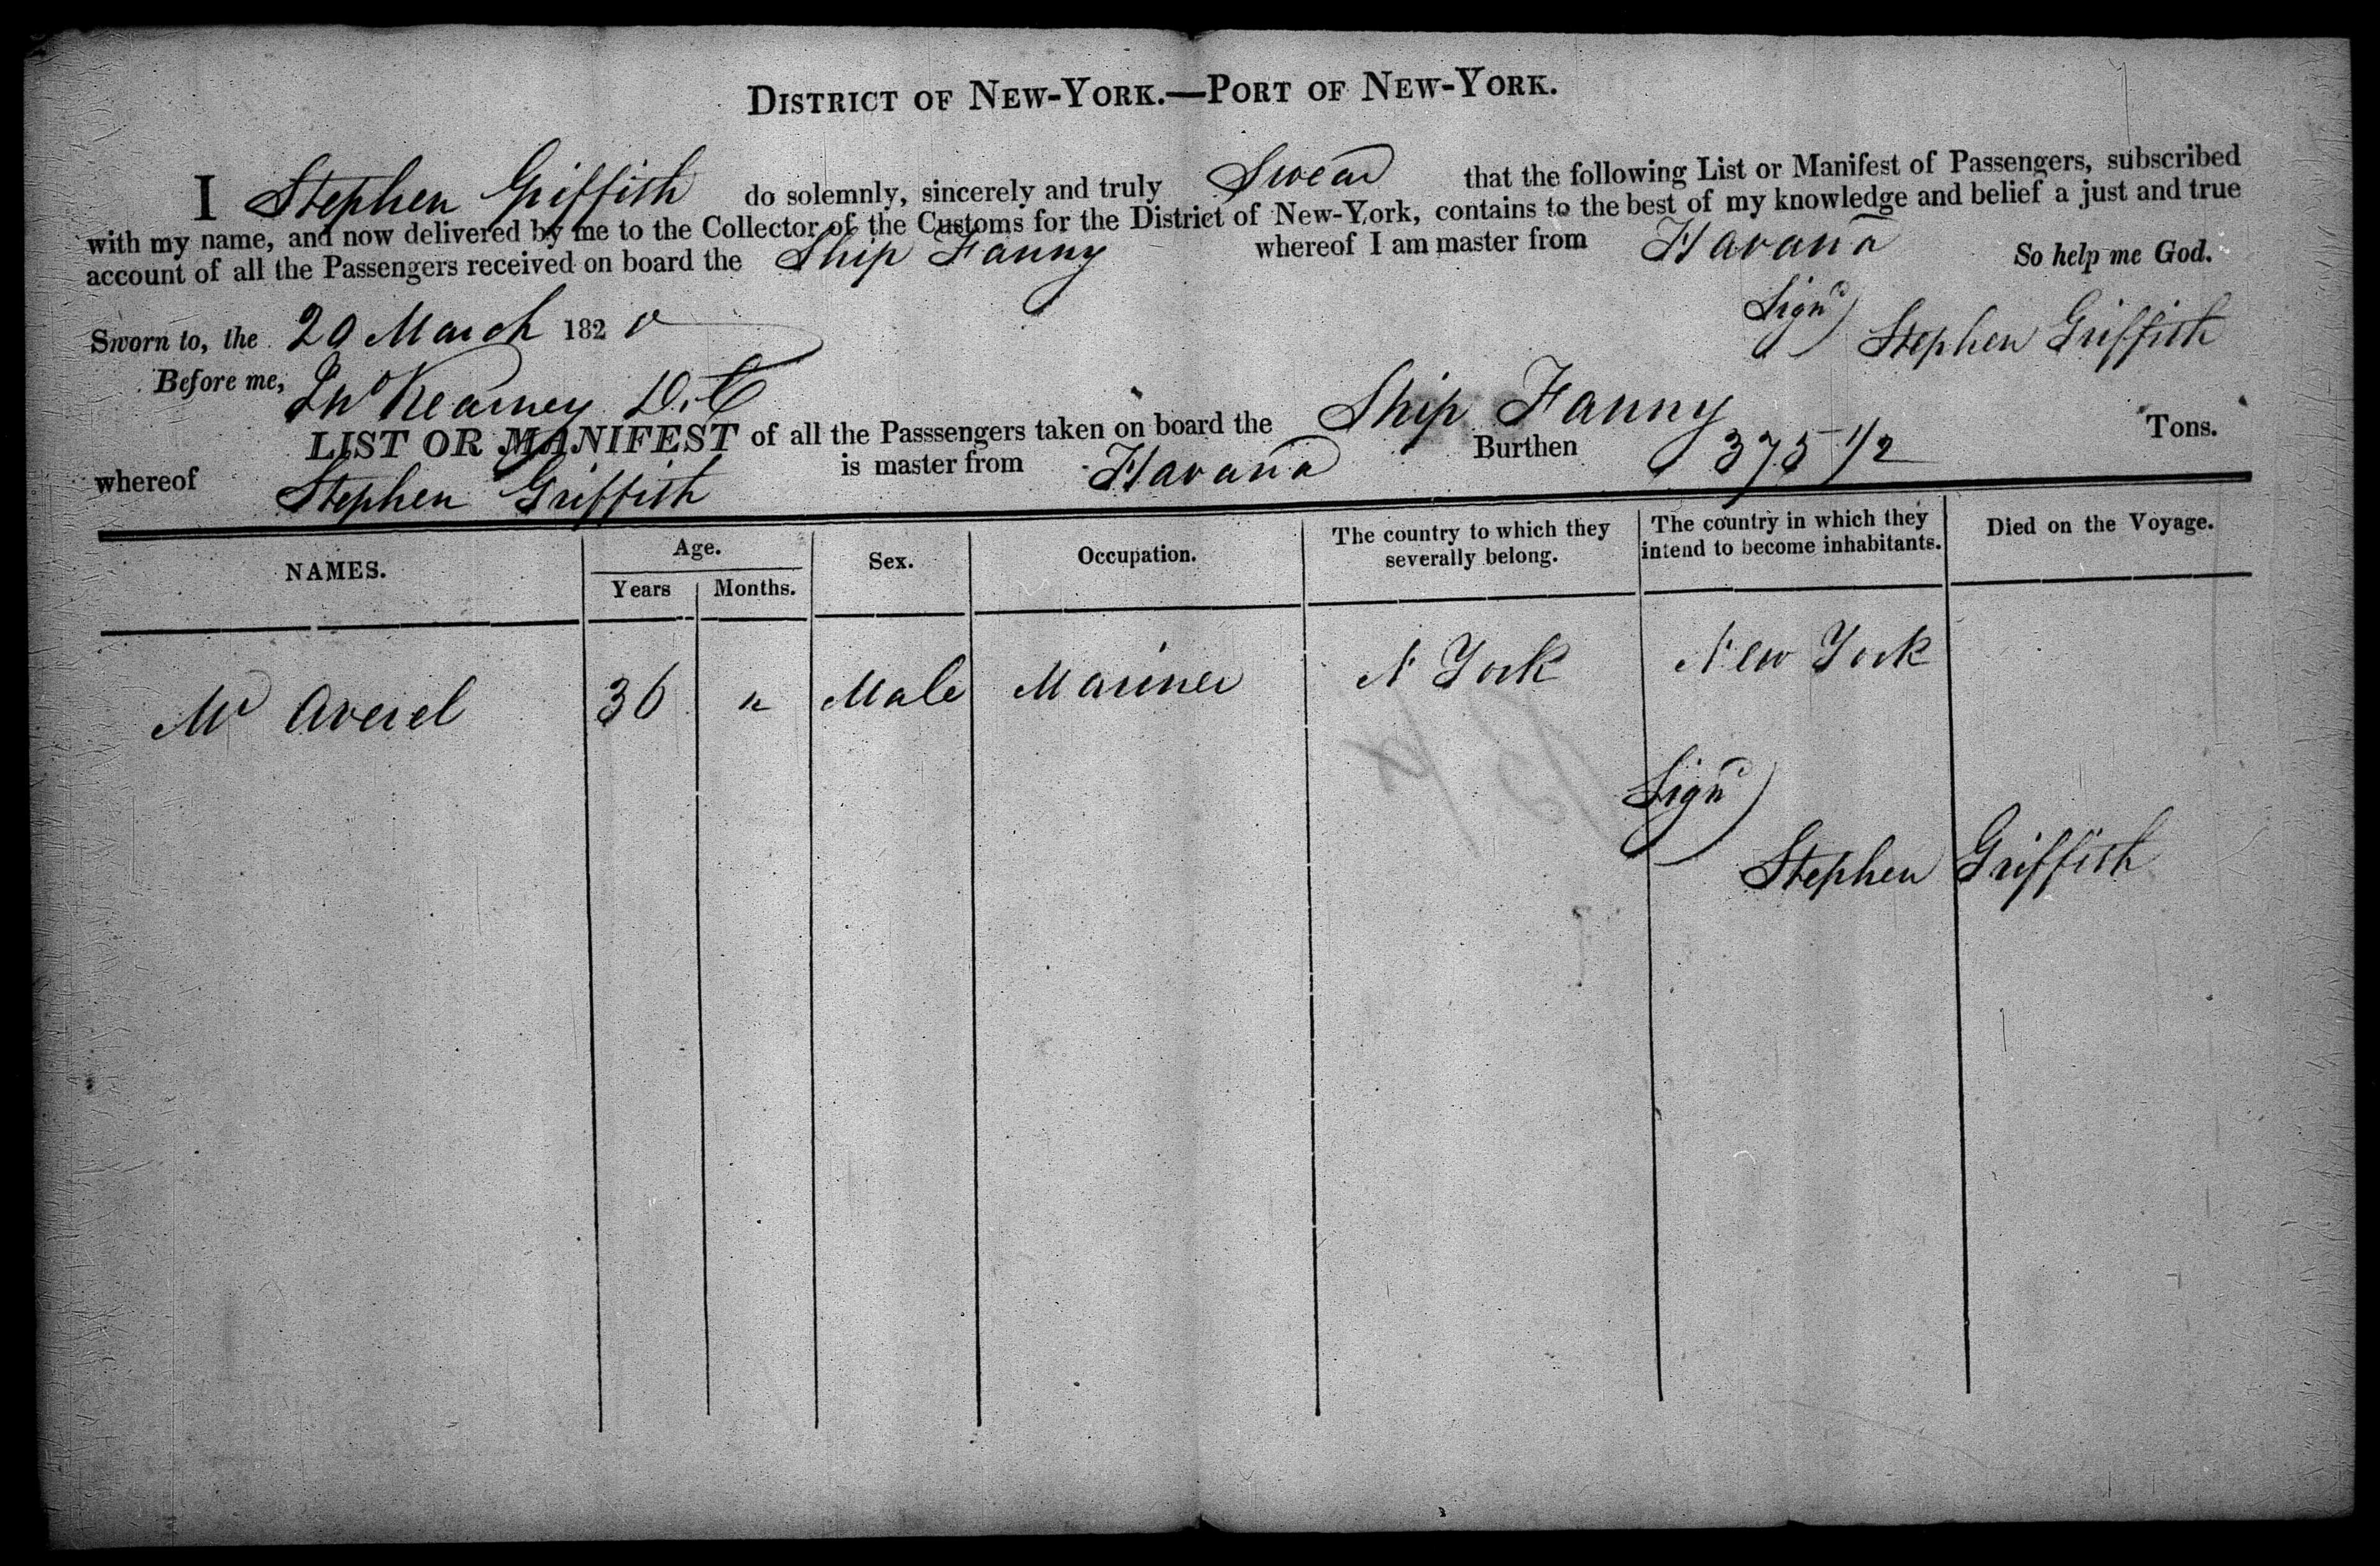 DISTRICT OF NEW-YORK.—PORT OF NEW-YORK.
I Stephen Griffith do solemnly, sincerely and truly Swear that the following List or Manifest of Passengers, subscribed
with my name, and now delivered by me to the Collector of the Customs for the District of New-York, contains to the best of my knowledge and belief a just and true
account of all the Passengers received on board the Ship Fanny whereof I am master from Havana So help me God.
Sworn to, the 29 March 1820 Signd) Stephen Griffith
Before me, Kearney D.C
LIST OR MANIFEST of all the Passsengers taken on board the Ship Fanny Burthen 375 1/2 Tons.
whereof Stephen Griffith is master from Havana
NAMES. Age. Years Months. Sex. Occupation. The country to which they severally belong. The country in which they intend to become inhabitants. Died on the Voyage.
Mr Averel 36 " Male Mariner N York New York
Signd)
Stephen Griffith